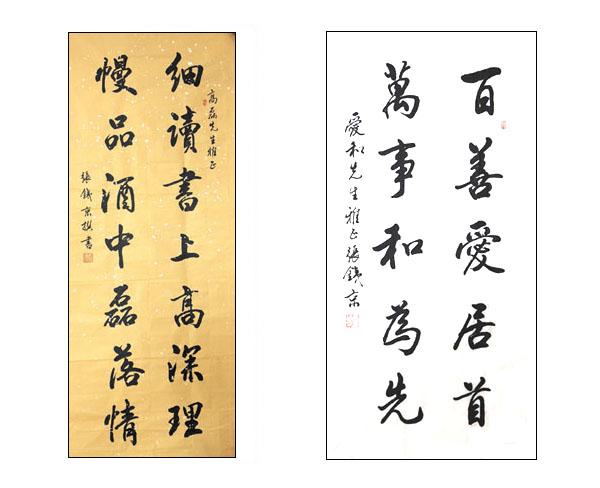 高磊先生雅正
细讀書上高深理
慢品酒中磊落情
張鐵京撰書
百善愛居首
萬事和為先
愛和先生雅正張鐵京